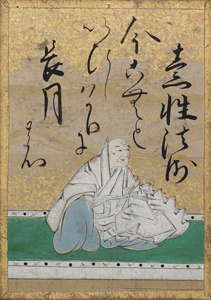 素性法師
今こむと
いひしはかりに
長月